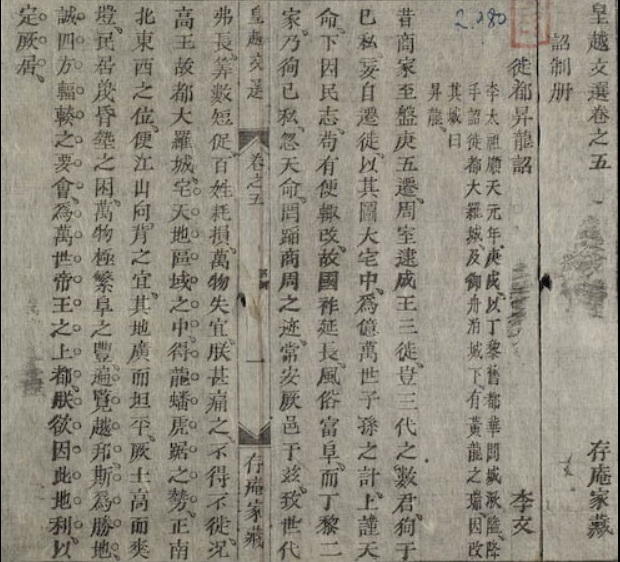 2.280
皇越文選卷之五 存庵家藏
詔制册
徙都昇龍詔 李文
李太祖順天元年庚戌以丁黎舊都華閭城湫隘降
手詔徙都大羅城及御舟泊城下有黃龍之瑞因改
其城曰
昇龍
昔商家至盤庚五遷周室逮成王三徙豈三代之數君狥于
已私妄自遷徙以其圖大宅中爲億萬世子孫之計上謹天
命下因民志苟有便輙改故國祚延長風俗富阜而丁黎二
家乃狥已私忽天命罔蹈商周之迹常安厥邑于兹致世代
皇越文選 卷之五 一 存庵家藏
弗長筭數短促百姓耗損萬物失宜朕甚痛之不得不徙况
高王故都大羅城宅天地區域之中得龍蟠虎踞之勢正南
北東西之位便江山向背之宜其地廣而坦平厥土高而爽
塏民居蔑昏墊之困萬物極繁阜之豐遍覽越邦斯爲勝地
誠四方輻輳之要會爲萬世帝王之上都朕欲因此地利以
定厥居